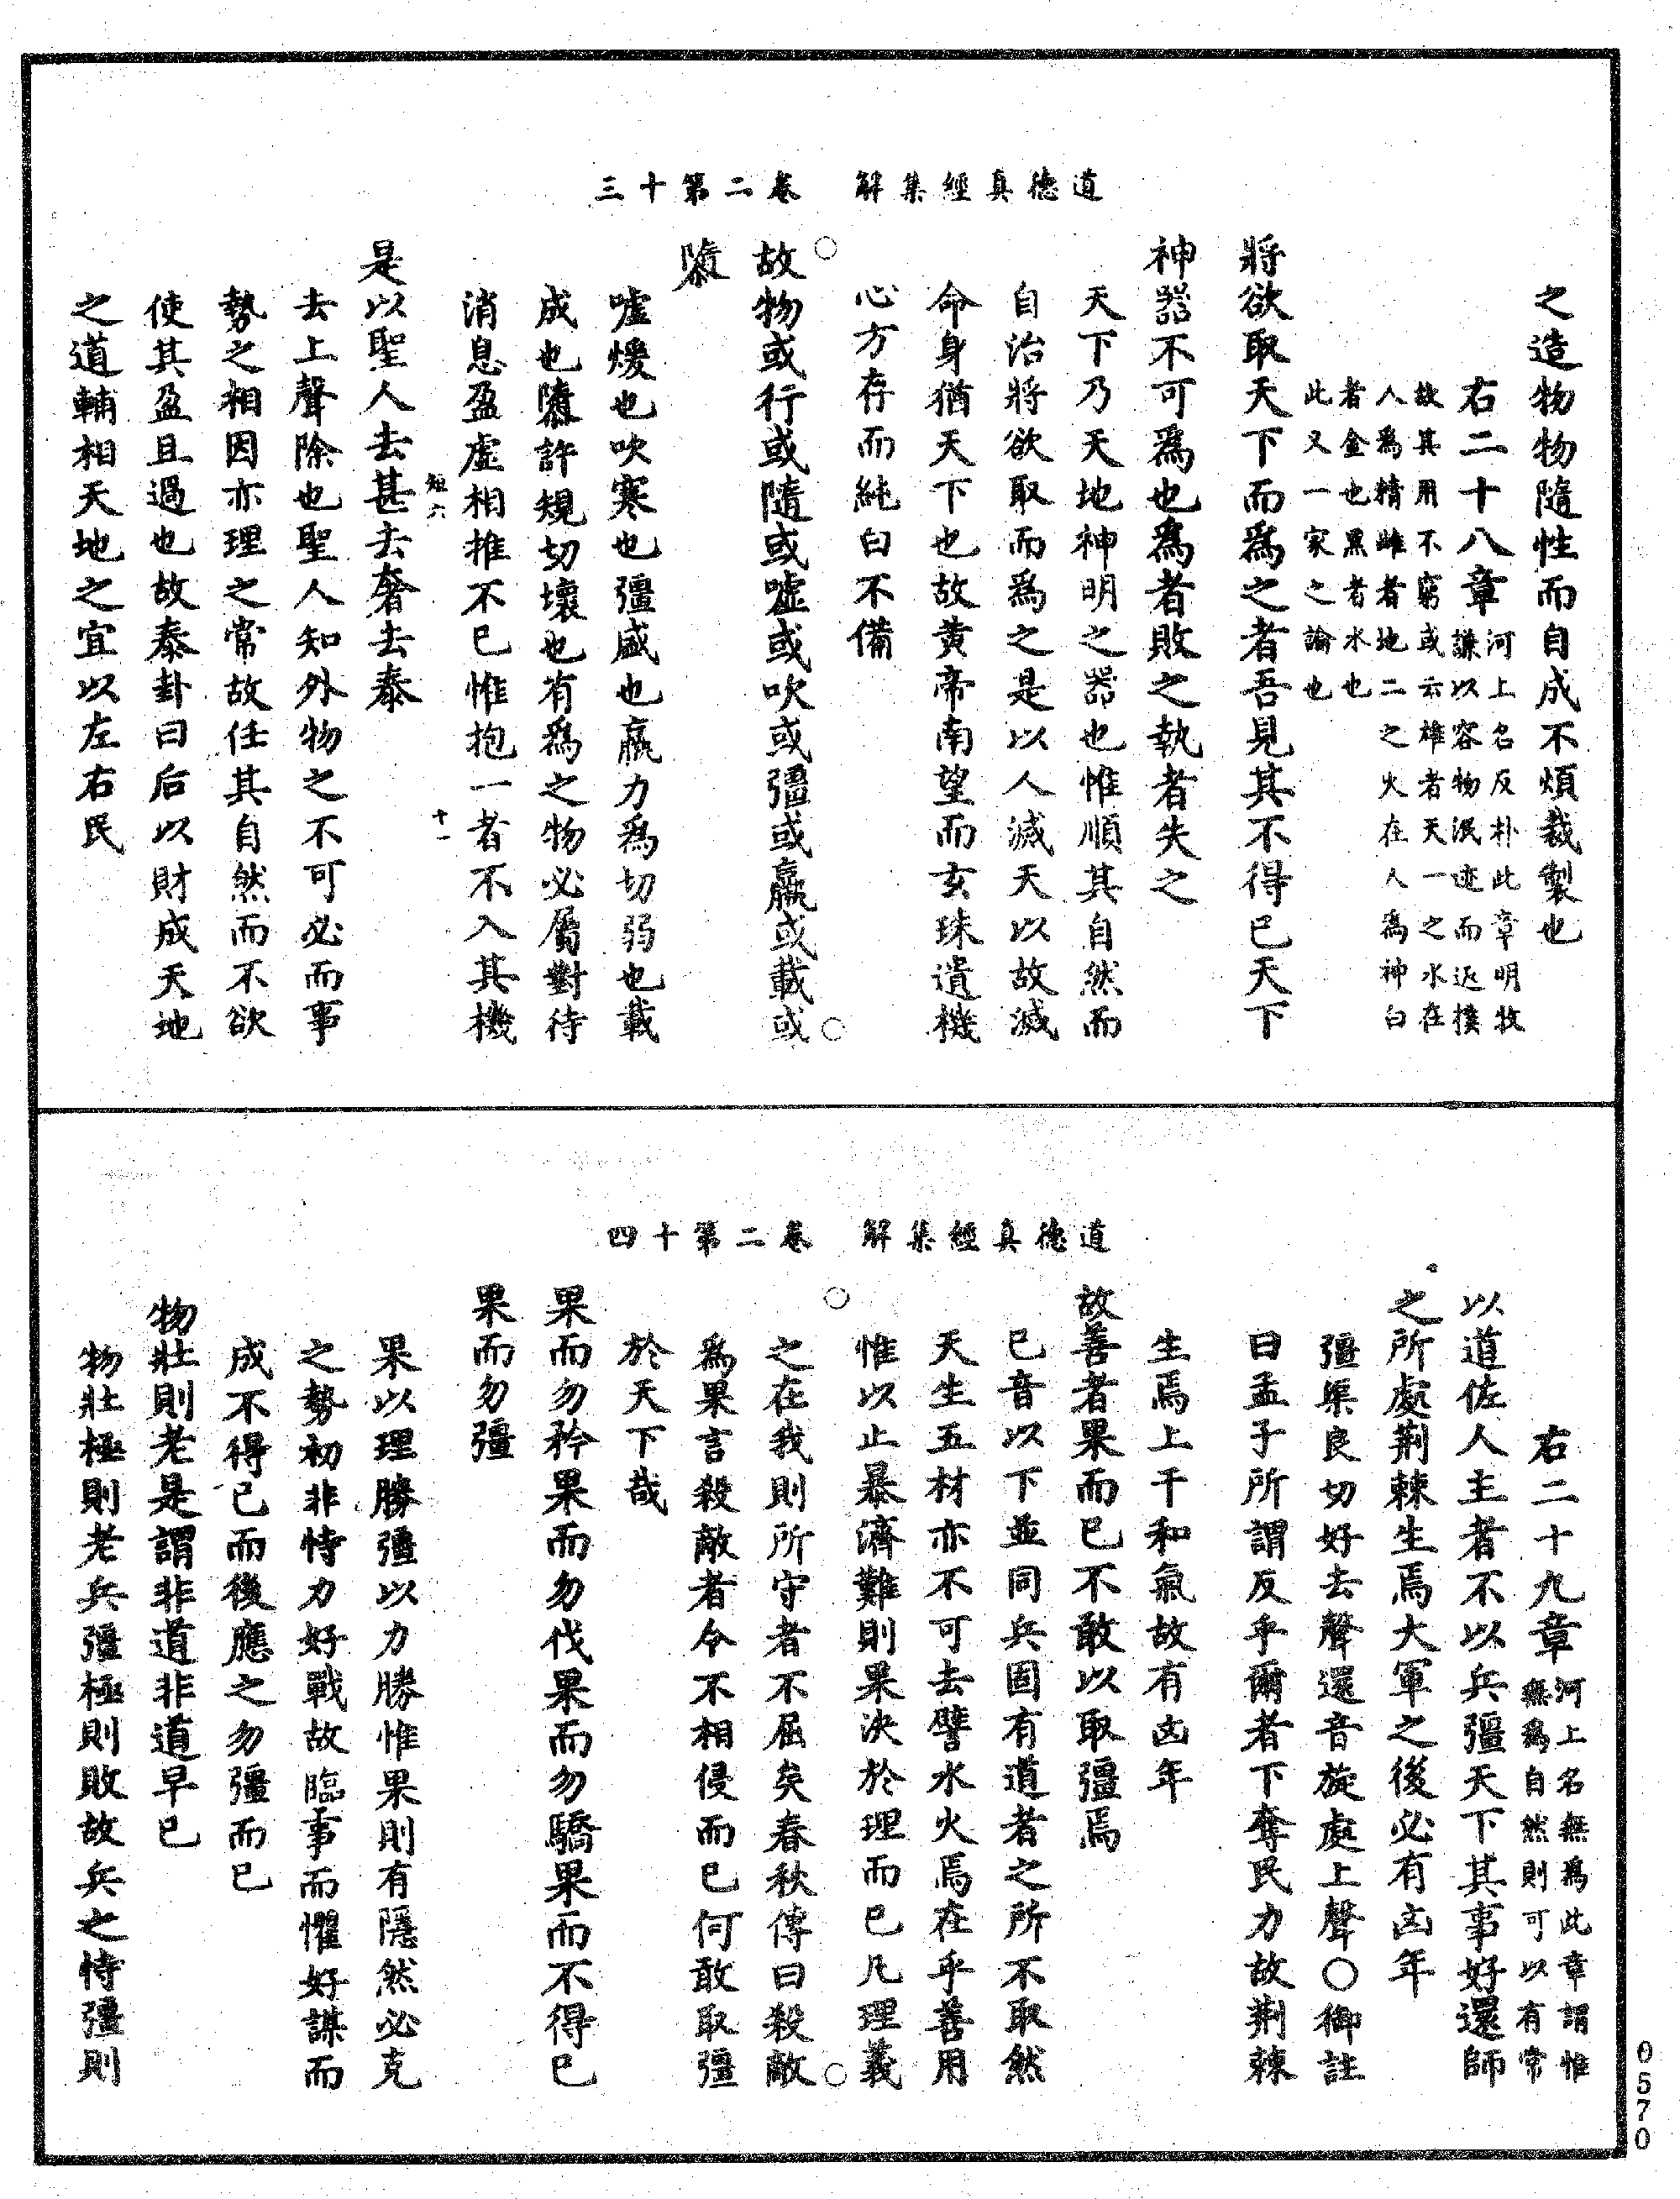 道德真經集解　卷二第十三
之造物物隨性而自成不煩裁製也
右二十八章河上名反朴此章明牧
謙以容物泯迹而返樸
故其用不窮或云雄者天一之水在
人爲精雌者地二之火在人爲神白
者金也黑者水也
此又一家之論也
將欲取天下而爲之者吾見其不得已天下
神器不可爲也爲者敗之執者失之
天下乃天地神明之器也惟順其自然而
自治將欲取而爲之是以人滅天以故滅
命身猶天下也故黄帝南望而玄珠遺機
心方存而純白不備
○
故物或行或隨或噓或吹或彊或羸或載或
○
隳
噓煖也吹寒也彊盛也羸力爲切弱也載
成也隳許規切壞也有爲之物必屬對待
消息盈虛相推不已惟抱一者不入其機
短六
十一
是以聖人去甚去奢去泰
去上聲除也聖人知外物之不可必而事
勢之相因亦理之常故任其自然而不欲
使其盈且過也故泰卦曰后以財成天地
之道輔相天地之宜以左右民
道德真經集解　卷二第十四
右二十九章河上名無爲此章謂惟
無爲自然則可以有常
以道佐人主者不以兵彊天下其事好還師
之所處荆棘生焉大軍之後必有凶年
彊渠良切好去聲還音旋處上聲○御註
曰孟子所謂反乎爾者下奪民力故荆棘
生焉上干和氣故有凶年
故善者果而已不敢以取彊焉
已音以下並同兵固有道者之所不取然
天生五材亦不可去譬水火焉在乎善用
惟以止暴濟難則果決於理而已凡理義
○
○
之在我則所守者不屈矣春秋傳曰殺敵
爲果言殺敵者令不相侵而已何敢取彊
於天下哉
果而勿矜果而勿伐果而勿驕果而不得已
果而勿彊
果以理勝彊以力勝惟果則有隱然必克
之勢初非恃力好戰故臨事而懼好謀而
成不得已而後應之勿彊而已
物壯則老是謂非道非道早已
物壯極則老兵彊極則敗故兵之恃彊則
0570